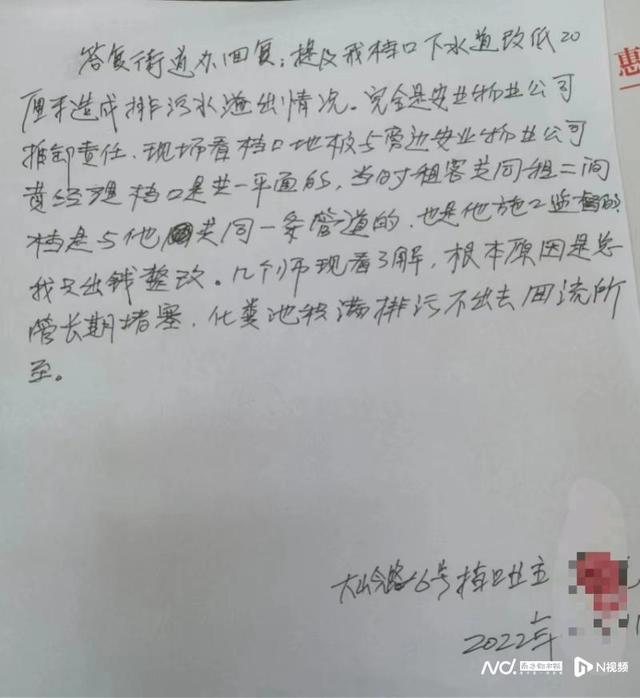 答复街道办回复：提及我档口下水道改低20
厘米造成排污水溢出情况。完全是安业物业公司
推卸责任、现场看档口地板与旁边安业物业公司
黄经理档口是共一平面的，当时租客共同租二间
档是与他共同一条管道的，也是他施工监督的
我只出钱整改。几个师现看了解，根本原因是总
管长期堵塞，化粪池积满排污不出去回流所
至。
6号档口业主
2022年
惠
南方都市报
N视频